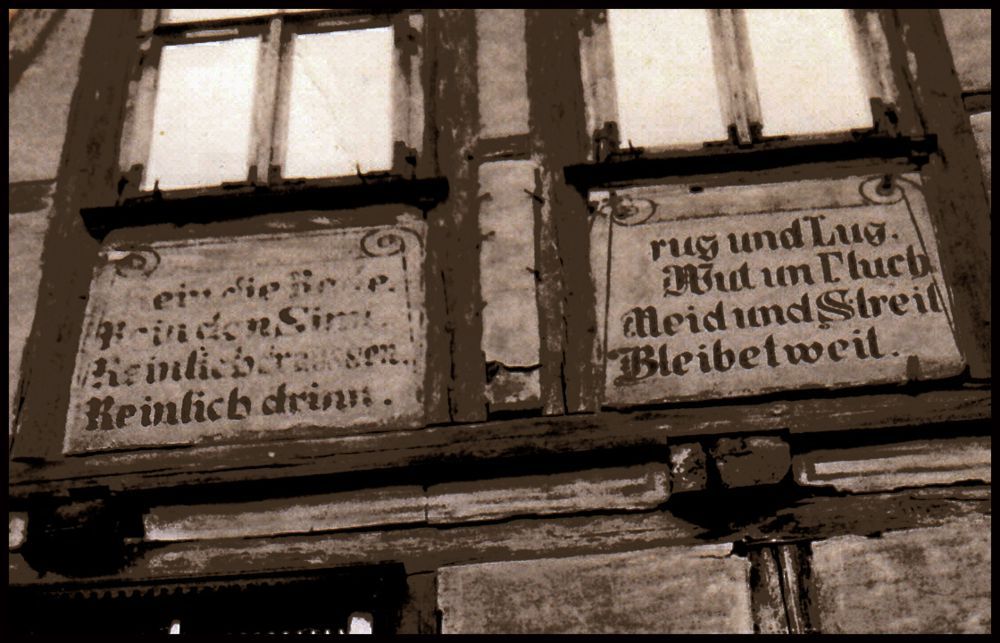 ein die
Rein den Sinn
Reinlich draussen.
Reinlich drinn.
rug und Lug.
Wut un Fluch
Meid und Streit
Bleibet weit.